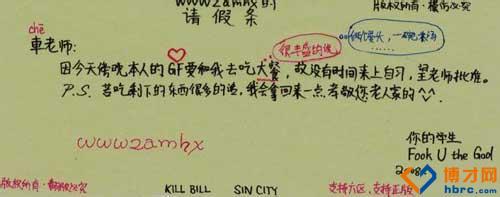 www2amhx的
请假条
版权所有·翻版必究
chē
車老师:
很丰盛的说
两个馒头,一碗
因今天傍晚本人的GF要和我去吃大餐,故没有时间来上自习,望老师批准。
P.S. 若吃剩下的东西很多的话,我会拿回来一点孝敬您老人家的^_^
www2amhx
你的学生
Fook U the God
版权所有·翻版必究
KILL BILL SIN CITY
支持六区,支持正版
博才网
hbrc.com